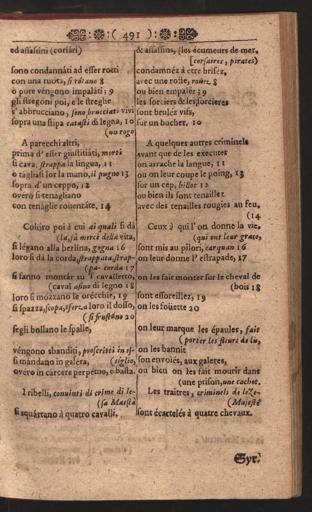 :( 491 ):
ed assassini (corsari)
sono condannàti ad esser rotti
con una ruota, si rótano 8
ò pure véngono impaláti; 9
gli stregóni poi, e le streghe
s'abbrucciano, sono brucciati vivi
sopra una stipa catasti di legna, 10
(un rogo
A parecchi altri,
prima d'esser giustitiáti, morti
si cava, strappa la lingua, 11
ò tágliasi lor la mano, il pugno 13
sopra d'un ceppo, 12
overo si tenágliano
con tenáglie roventáte, 14
Colóro poi à cui ai quali si dà
(la, sà mercè della vita,
si légano alla berlina, gogna 16
loro si dà la corda, strappata, strap-
(pa-corda 17
si fanno montár sù 'l cavalletto,
(caval asino di legno 18
loro si mozzano le orécchie, 19
si spazza, scopa, sferza loro il dosso,
(si frustáno 20
segli bollano le spalle,
véngono sbanditi, proscritti in es-
si mándano in galera, (siglio,
overo in cárcere perpétuo, ò basta.
I ribelli, convinti di crime di le-
(sa Maestà
si squártano à quattro cavalli,
& assassins, (les écumeurs de mer,
(corsaires, pirates)
condamnéz à être brisez,
avec une roüe, roüez 8
ou bien empaléz 9
les sorciers & les sorcieres
sont brulez vifs,
sur un bucher. 10
A quelques autres criminels
avant que de les executer
on arrache la langue, 11
ou on leur coupe le poing, 13
sur un cep, billot 12
ou bien ils sont tenaillez
avec des tenailles rougies au feu,
(14
Ceux à qui l'on donne la vie,
(qui ont leur grace,
sont mis au pilori, carquan 16
on leur donne l'estrapade, 17
on les fait monter sur le cheval de
(bois 18
sont essoreillez, 19
on les foüette 20
on leur marque les épaules, fait
(porter les fleurs de lis,
on les bannit
son envoiés, aux galeres,
ou bien on les fait mourir dans
(une prison, une cachot.
Les traitres, criminels de leze-
(Majesté
sont écartelés à quatre chevaux.
Syr.